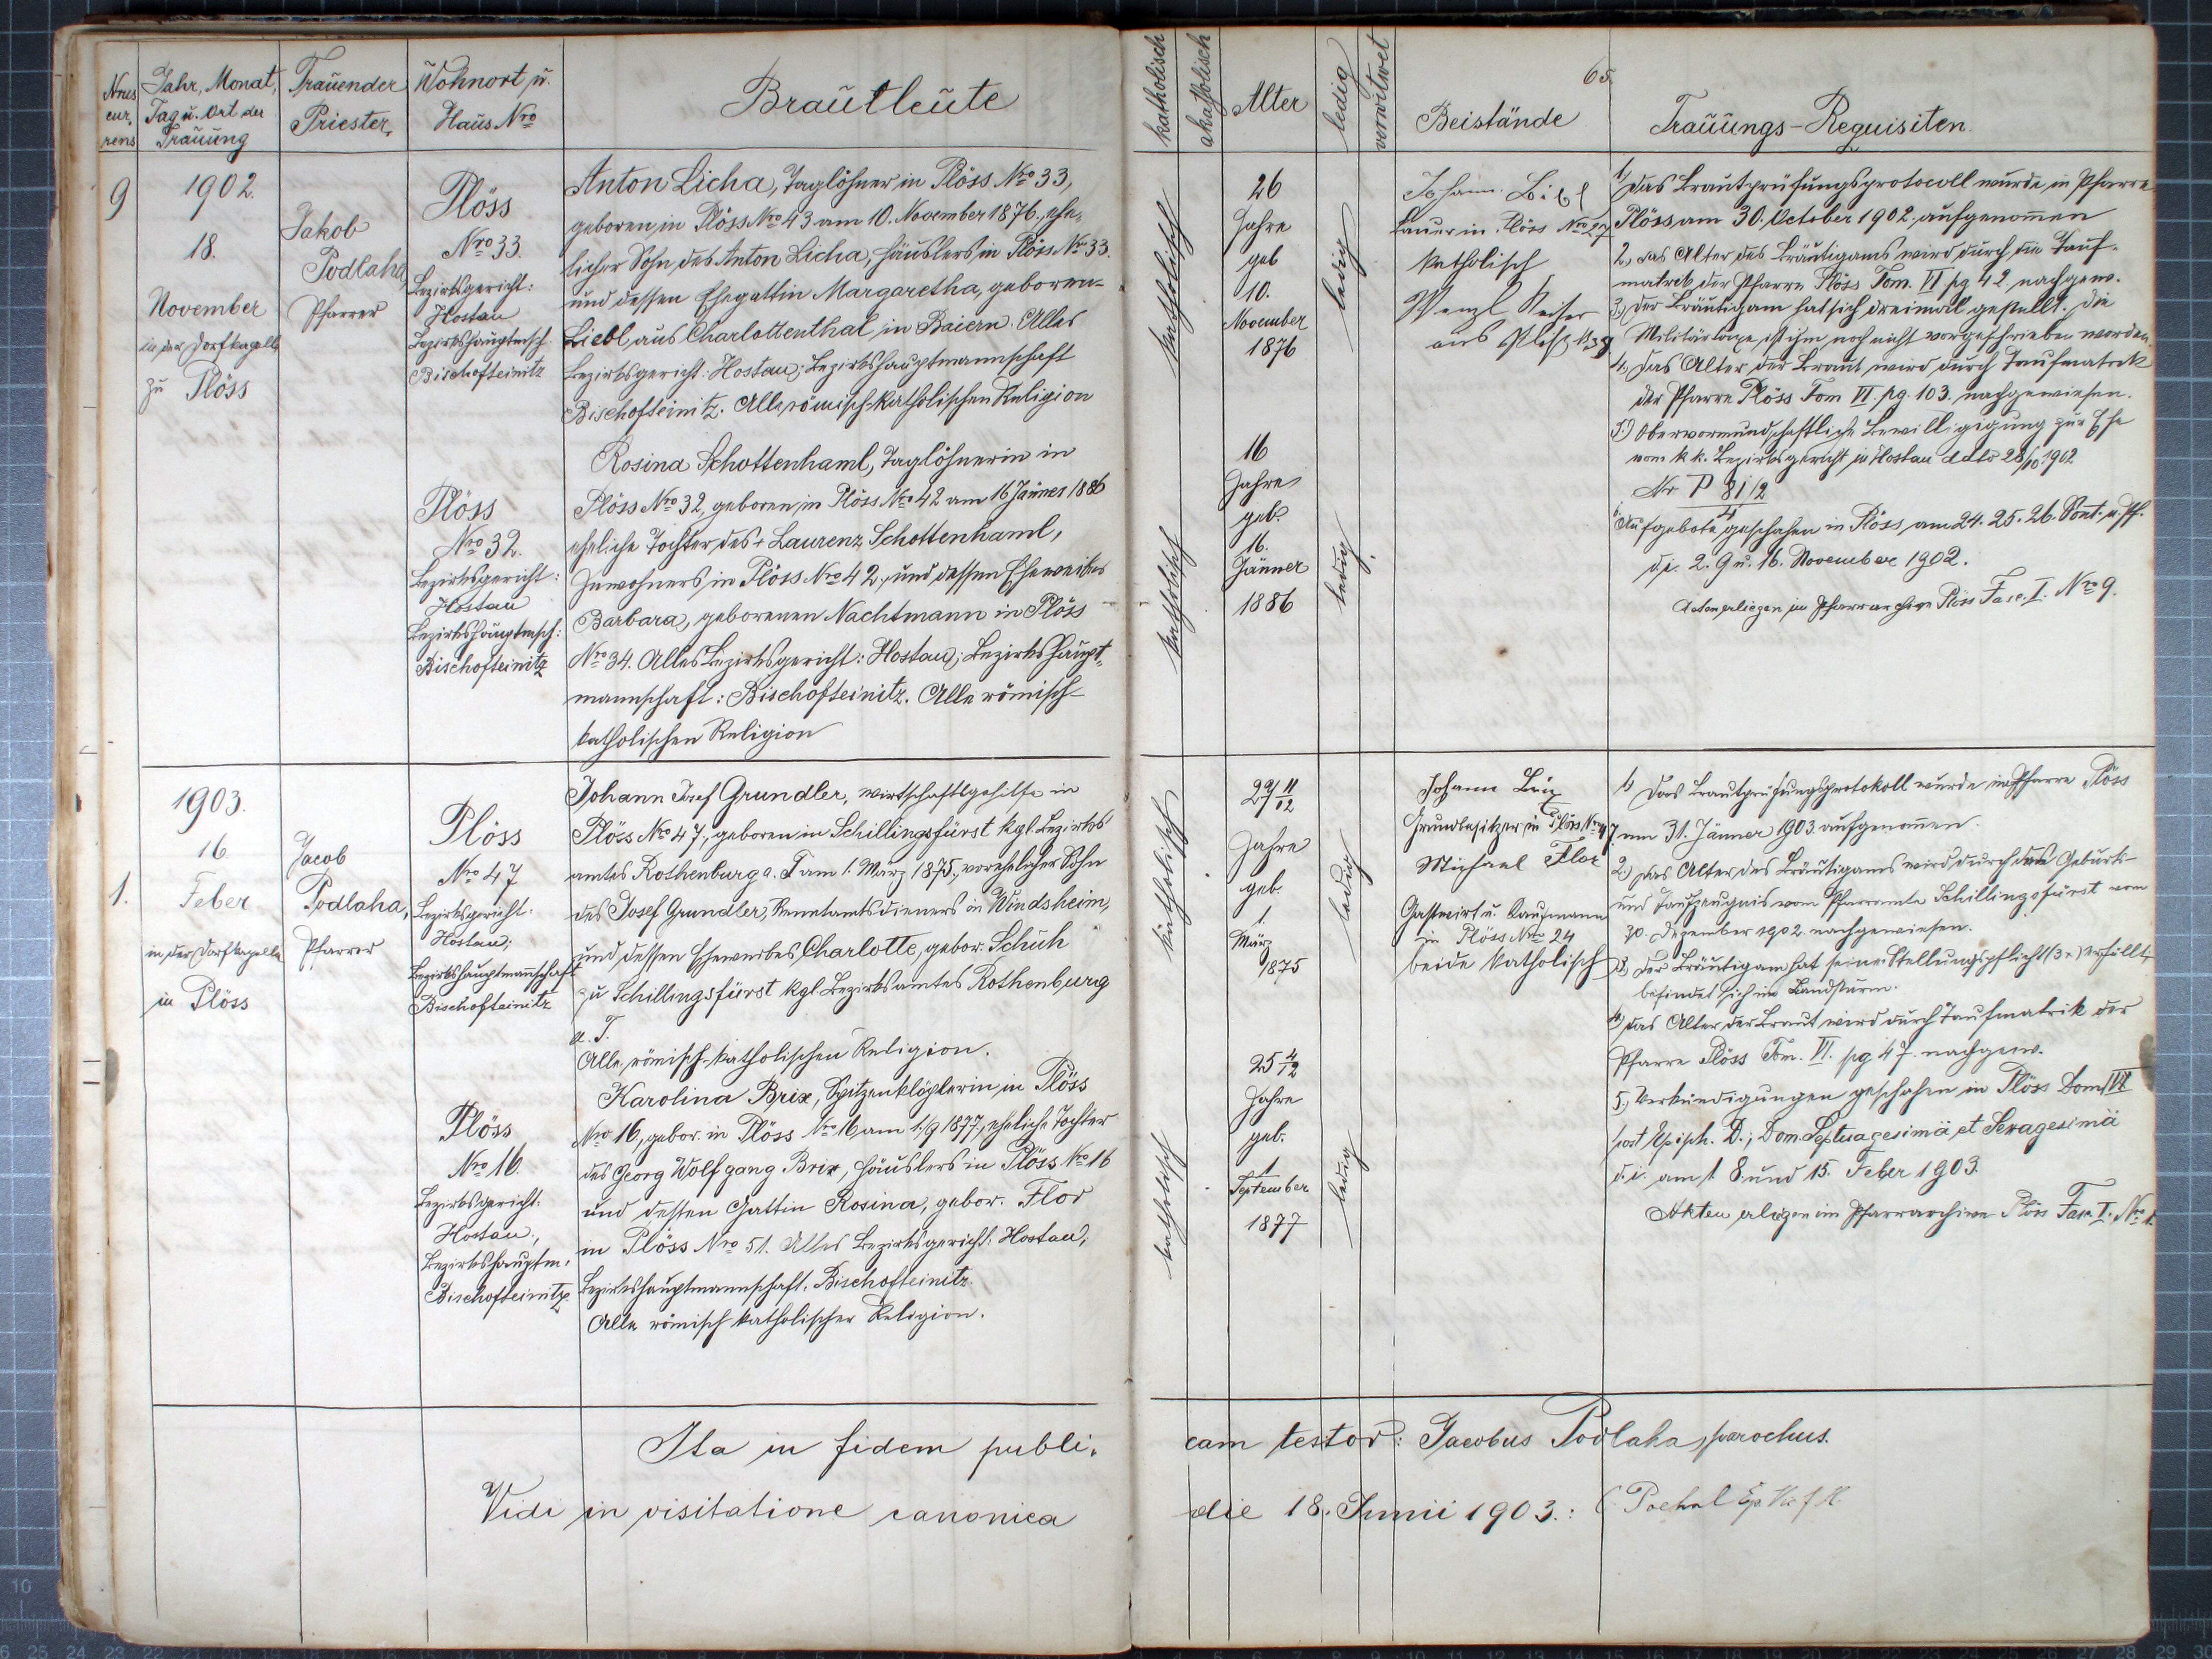 65.
Nrus currens
Jahr, Monat, Tag u. Ort der Trauung
Trauender Priester
Wohnort u. Haus Nro
Brautleute
katholisch
akatholisch
Alter
ledig
verwitwet
Beistände
Trauungs-Requisiten.
9
1902.
18.
November
in der Dorfkapelle
zu Plöss
Jakob
Podlaha,
Pfarrer
Plöss
Nro 33.
Bezirksgericht:
Hostau
Bezirkshauptmsch.
Bischofteinitz
Anton Licha, Taglöhner in Plöss Nro 33,
geboren in Plöss Nro 43 am 10. November 1876, ehe-
licher Sohn des Anton Licha, Häuslers in Plöss Nro 33.
und dessen Ehegattin Margaretha, geboren-
Liebl aus Charlottenthal in Baiern. Alles
Bezirksgericht: Hostau; Bezirkshauptmannschaft
Bischofteinitz. Alle römisch-katholischen Religion
Plöss
Nro 32.
Bezirksgericht:
Hostau
Bezirkshauptmsch:
Bischofteinitz
Rosina Schottenhaml, Taglöhnerin in
Plöss Nro 32, geboren in Plöss Nro 42 am 16 Jänner 1886
eheliche Tochter des + Laurenz Schottenhaml,
Inwohners in Plöss Nro 42, und dessen Eheweibes
Barbara, geborenen Nachtmann in Plöss
Nro 34. Alles Bezirksgericht: Hostau; Bezirkshaupt-
mannschaft: Bischofteinitz. Alle römisch-
katholischen Religion
katholisch
26
Jahre
geb
10.
November
1876
ledig
katholisch
16
Jahre
geb.
16.
Jänner
1886
ledig
Johann
Bauer in Plöss Nro 27
katholisch
Wenzl
aus Plöß
1) Das Brautprüfungsprotocoll wurde in Pfarre
Plöss am 30. October 1902. aufgenommen
2., das Alter des Bräutigams wird durch die Tauf-
matrik der Pfarre Plöss Tom. VI pg 42 nachgew.
3.) Der Bräutigam hat sich dreimal gestellt. Die
Militärtaxe ist ihm noch nicht vorgeschrieben worden
4., Das Alter der Braut wird durch Taufmatrik
der Pfarre Plöss Tom VI. pg. 103. nachgewiesen.
5.) Obervormundschaftliche Bewilligigung zur Ehe
vom k k. Bezirksgericht in Hostau ddto 28/10 1902
Nr P 81/2
4
6. Aufgebote geschahen in Plöss am 24. 25. 26. Sont. n. Pf.
d. i. 2. 9 u. 16. November 1902.
Acten erliegen im Pfarrarchive Plöss Fasc. I. Nro 9.
1.
1903.
16
Feber
in der Dorfkapelle
in Plöss
Jacob
Podlaha,
Pfarrer
Plöss
Nro 47
Bezirksgericht:
Hostau;
Bezirkshauptmannschaft
Bischofteinitz
Johann Josef Grundler, Wirtschaftsgehilfe in
Plöss Nro 47, geboren in Schillingsfürst kgl. Bezirks
amtes Rothenburg a. T am 1. März 1875, vorehelicher Sohn
des Josef Grundler, Renntamtsdieners in Windsheim,
und dessen Eheweibes Charlotte, gebor. Schuh
zu Schillingsfürst kgl. Bezirksamtes Rothenburg
a. T.
Alle römisch-katholischen Religion.
Plöss
Nro 16
Bezirksgericht:
Hostau,
Bezirkshauptm.
Bischofteinitz.
Karolina Brix, Spitzenklöplerin in Plöss
Nro 16, gebor. in Plöss Nro 16 am 1./9 1877, eheliche Tochter
des Georg Wolfgang Brix, Häuslers in Plöss Nro 16
und dessen Gattin Rosina, gebor. Flor
in Plöss Nro 51. Alles Bezirksgericht: Hostau;
Bezirkshauptmannschaft. Bischofteinitz.
Alle römisch katholischer Religion.
katholisch
27 11/12
Jahre
geb.
1.
März
1875
ledig
katholisch
25 4/12
Jahre
geb.
1
September
1877
ledig
Johann
Grundbesitzer in Plöss Nro 47
Michael Flor
Gastwirt u. Kaufmann
in Plöss Nro 24
beide katholisch
1) Das Brautprüfungsprotokoll wurde in Pfarre Plöss
am 31. Jänner 1903 aufgenommen.
2.) Das Alter des Bräutigams wird durch das Geburts-
und Taufzeugnis vom Pfarramte Schillingsfürst vom
30. Dezember 1902 nachgewiesen.
3.) Der Bräutigam hat seine Stellungspflicht (3x) erfüllt,
befindet sich im Landsturm.
4.) das Alter der Braut wird durch Taufmatrik der
Pfarre Plöss Tom. VI. pg 47. nachgew.
5.) Verkündigungen geschahen in Plöss Dom VI
post Epiph. D.; Dom. Septuagesimä et Sexagesimä
d. i. am 1 8 und 15. Feber 1903.
Akten erliegen im Pfarrarchive Plöss Fasc. I. Nro 1.
Ita in fidem publi- cam testor: Jacobus Podlaha, parochus.
Vidi in visitatione canonica die 18. Junii 1903.: